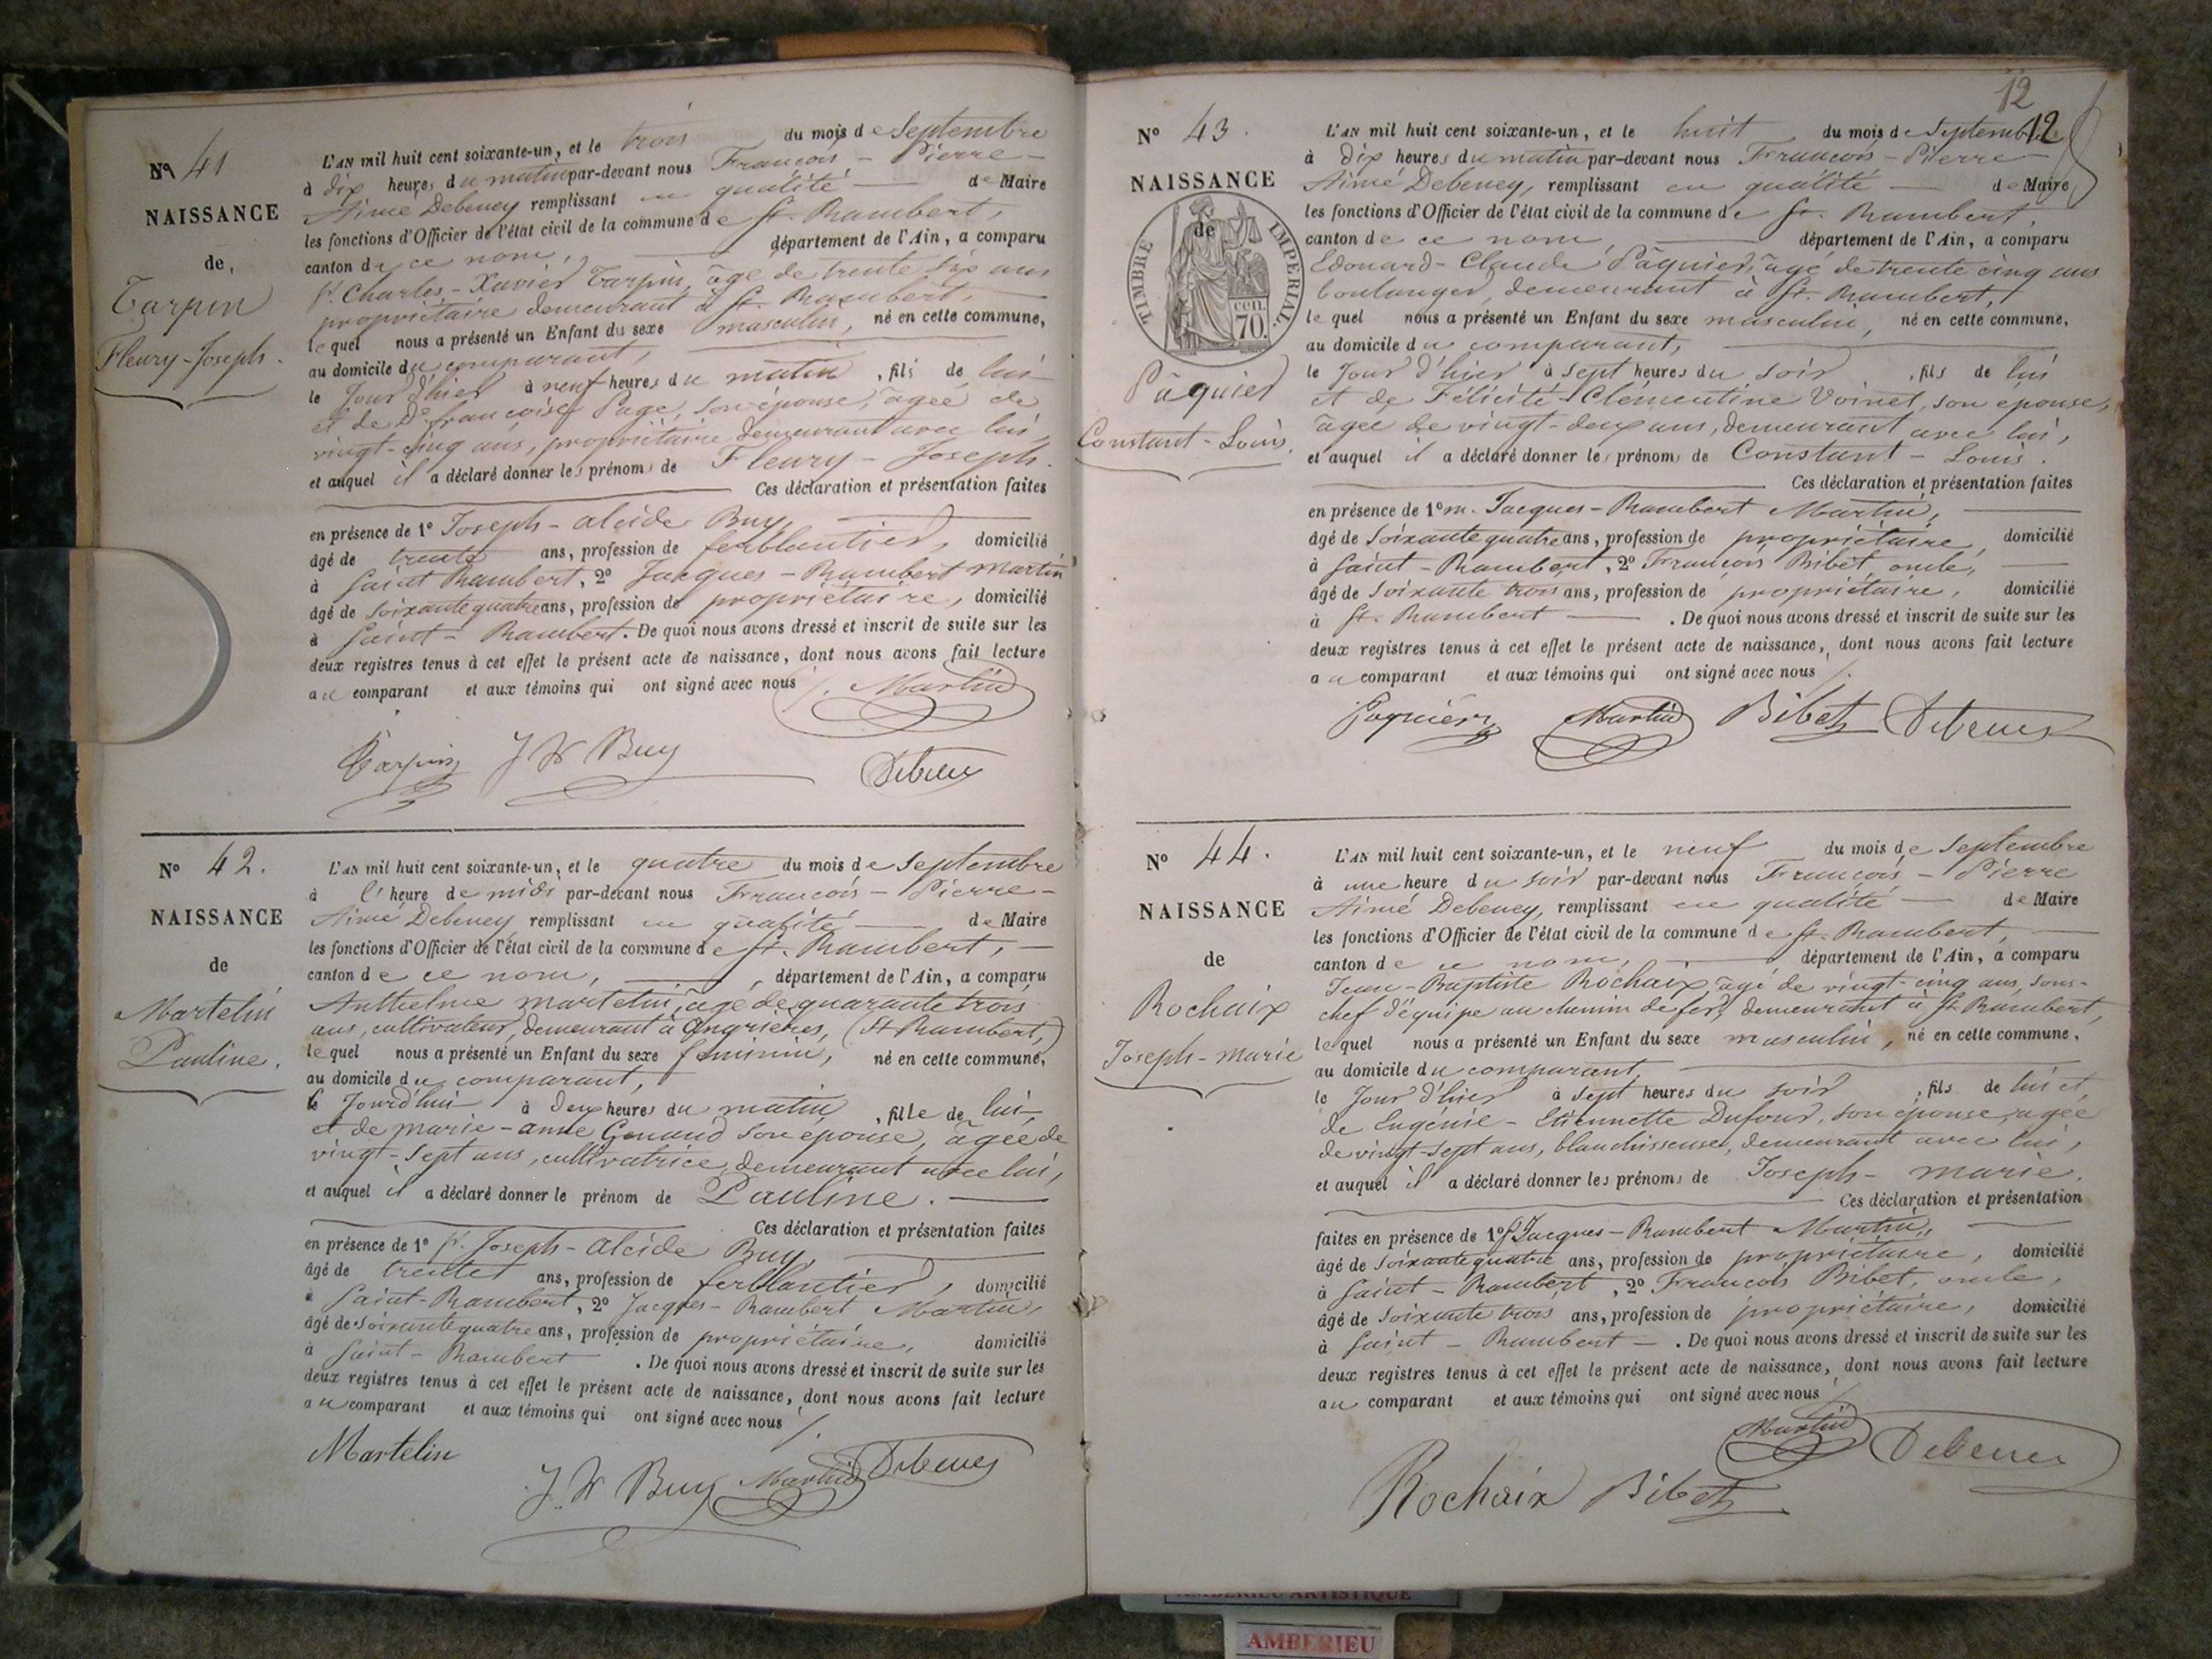 Nº 41
NAISSANCE
de
Tarpin
Fleury-Joseph.
L'AN mil huit cent soixante-un, et le trois du mois de Septembre
à dix heures du matin par-devant nous François - Pierre -
Aimé Debeney remplissant en qualité de Maire
les fonctions d'Officier de l'état civil de la commune de St. Rambert,
canton de ce nom, département de l'Ain, a comparu
Sr. Charles-Xavier Tarpin, âgé de trente six ans
propriétaire demeurant à St. Rambert,
lequel nous a présenté un Enfant du sexe masculin, né en cette commune,
au domicile du comparant,
le Jour d'hier à neuf heures du matin, fils de lui
et de De. françoise Page, son épouse, âgée de
vingt-cinq ans, propriétaire demeurant avec lui,
et auquel il a déclaré donner les prénoms de Fleury-Joseph.
Ces déclaration et présentation faites
en présence de 1º Joseph-alcide Buy,
âgé de trente ans, profession de ferblantier, domicilié
à Saint Rambert, 2º Jacques-Rambert Martin
âgé de soixante quatre ans, profession de propriétaire, domicilié
à Saint-Rambert. De quoi nous avons dressé et inscrit de suite sur les
deux registres tenus à cet effet le présent acte de naissance, dont nous avons fait lecture
au comparant et aux témoins qui ont signé avec nous
Martin
Tarpin Buy Debeney
Nº 42.
NAISSANCE
de
Martelin
Pauline.
L'AN mil huit cent soixante-un, et le quatre du mois de Septembre
à l'heure de midi par-devant nous François - Pierre -
Aimé Debeney remplissant en qualité de Maire
les fonctions d'Officier de l'état civil de la commune de St. Rambert,
canton de ce nom, département de l'Ain, a comparu
Anthelme martelin, âgé de quarante trois
ans, cultivateur, demeurant à Angrières, (St Rambert,)
lequel nous a présenté un Enfant du sexe féminin, né en cette commune,
au domicile du comparant,
le Jourd'hui à deux heures du matin, fille de lui
et de marie-anne Genaud son épouse, âgée de
vingt-sept ans, cultivatrice, demeurant avec lui,
et auquel il a déclaré donner le prénom de Pauline.
Ces déclaration et présentation faites
en présence de 1º Sr. Joseph-alcide Buy,
âgé de trente ans, profession de ferblantier, domicilié
à Saint-Rambert, 2º Jacques-Rambert Martin,
âgé de soixante quatre ans, profession de propriétaire, domicilié
à Saint-Rambert. De quoi nous avons dressé et inscrit de suite sur les
deux registres tenus à cet effet le présent acte de naissance, dont nous avons fait lecture
au comparant et aux témoins qui ont signé avec nous
Martelin Buy Martin Debeney
12
12
Nº 43.
NAISSANCE
de
TIMBRE IMPERIAL.
cen.
70
Pâquier
Constant-Louis.
L'AN mil huit cent soixante-un, et le huit du mois de Septembre
à dix heures du matin par-devant nous François - Pierre
Aimé Debeney, remplissant en qualité de Maire
les fonctions d'Officier de l'état civil de la commune de St. Rambert,
canton de ce nom, département de l'Ain, a comparu
Edouard-Claude Pâquier, âgé de trente cinq ans
boulanger, demeurant à St. Rambert,
lequel nous a présenté un Enfant du sexe masculin, né en cette commune,
au domicile du comparant,
le Jour d'hier à sept heures du soir, fils de lui
et de Félicité-Clémentine Voinet, son épouse,
âgée de vingt-deux ans, demeurant avec lui,
et auquel il a déclaré donner les prénoms de Constant-Louis.
Ces déclaration et présentation faites
en présence de 1º m. Jacques-Rambert Martin,
âgé de soixante quatre ans, profession de propriétaire, domicilié
à Saint-Rambert, 2º François Bibet, oncle,
âgé de soixante trois ans, profession de propriétaire, domicilié
à St. Rambert. De quoi nous avons dressé et inscrit de suite sur les
deux registres tenus à cet effet le présent acte de naissance, dont nous avons fait lecture
au comparant et aux témoins qui ont signé avec nous
Paquier Martin Bibet Debeney
Nº 44.
NAISSANCE
de
Rochaix
Joseph-marie
L'AN mil huit cent soixante-un, et le neuf du mois de Septembre
à une heure du soir par-devant nous François - Pierre
Aimé Debeney, remplissant en qualité de Maire
les fonctions d'Officier de l'état civil de la commune de St. Rambert,
canton de ce nom, département de l'Ain, a comparu
Jean-Baptiste Rochaix, âgé de vingt-cinq ans, sous-
chef d'équipe au chemin de fer, demeurant à St. Rambert,
lequel nous a présenté un Enfant du sexe masculin, né en cette commune,
au domicile du comparant,
le Jour d'hier à sept heures du soir, fils de lui et
de Eugénie-Etiennette Dufour, son épouse, âgée
de vingt-sept ans, blanchisseuse, demeurant avec lui,
et auquel il a déclaré donner les prénoms de Joseph-marie.
Ces déclaration et présentation
faites en présence de 1º Sr. Jacques-Rambert Martin,
âgé de soixante quatre ans, profession de propriétaire, domicilié
à Saint-Rambert, 2º François Bibet, oncle,
âgé de soixante trois ans, profession de propriétaire, domicilié
à Saint-Rambert. De quoi nous avons dressé et inscrit de suite sur les
deux registres tenus à cet effet le présent acte de naissance, dont nous avons fait lecture
au comparant et aux témoins qui ont signé avec nous
Martin Debeney
Rochaix Bibet
AMBERIEU ARTISTIQUE
AMBERIEU